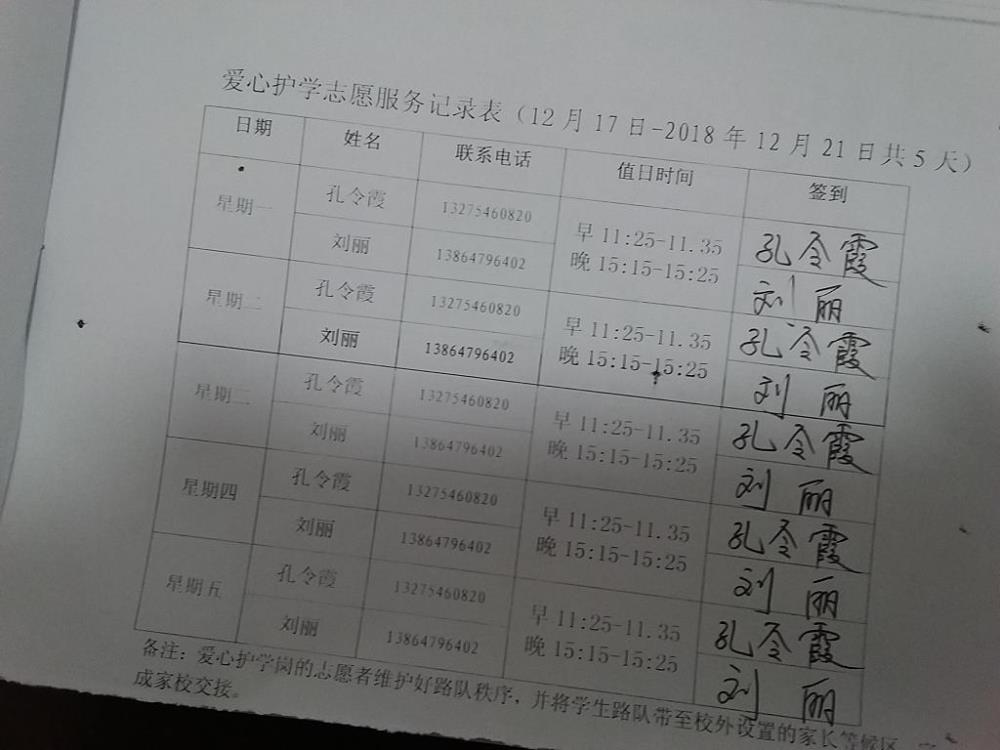 爱心护学志愿服务记录表（12月17日-2018年12月21日共5天）
日期 姓名 联系电话 值日时间 签到
星期一 孔令霞 13275460820 早11:25-11.35 晚15:15-15:25 孔令霞
刘丽 13864796402 刘丽
星期二 孔令霞 13275460820 早11:25-11.35 晚15:15-15:25 孔令霞
刘丽 13864796402 刘丽
星期三 孔令霞 13275460820 早11:25-11.35 晚15:15-15:25 孔令霞
刘丽 13864796402 刘丽
星期四 孔令霞 13275460820 早11:25-11.35 晚15:15-15:25 孔令霞
刘丽 13864796402 刘丽
星期五 孔令霞 13275460820 早11:25-11.35 晚15:15-15:25 孔令霞
刘丽 13864796402 刘丽
备注：爱心护学岗的志愿者维护好路队秩序，并将学生路队带至校外设置的家长等候区，
成家校交接。